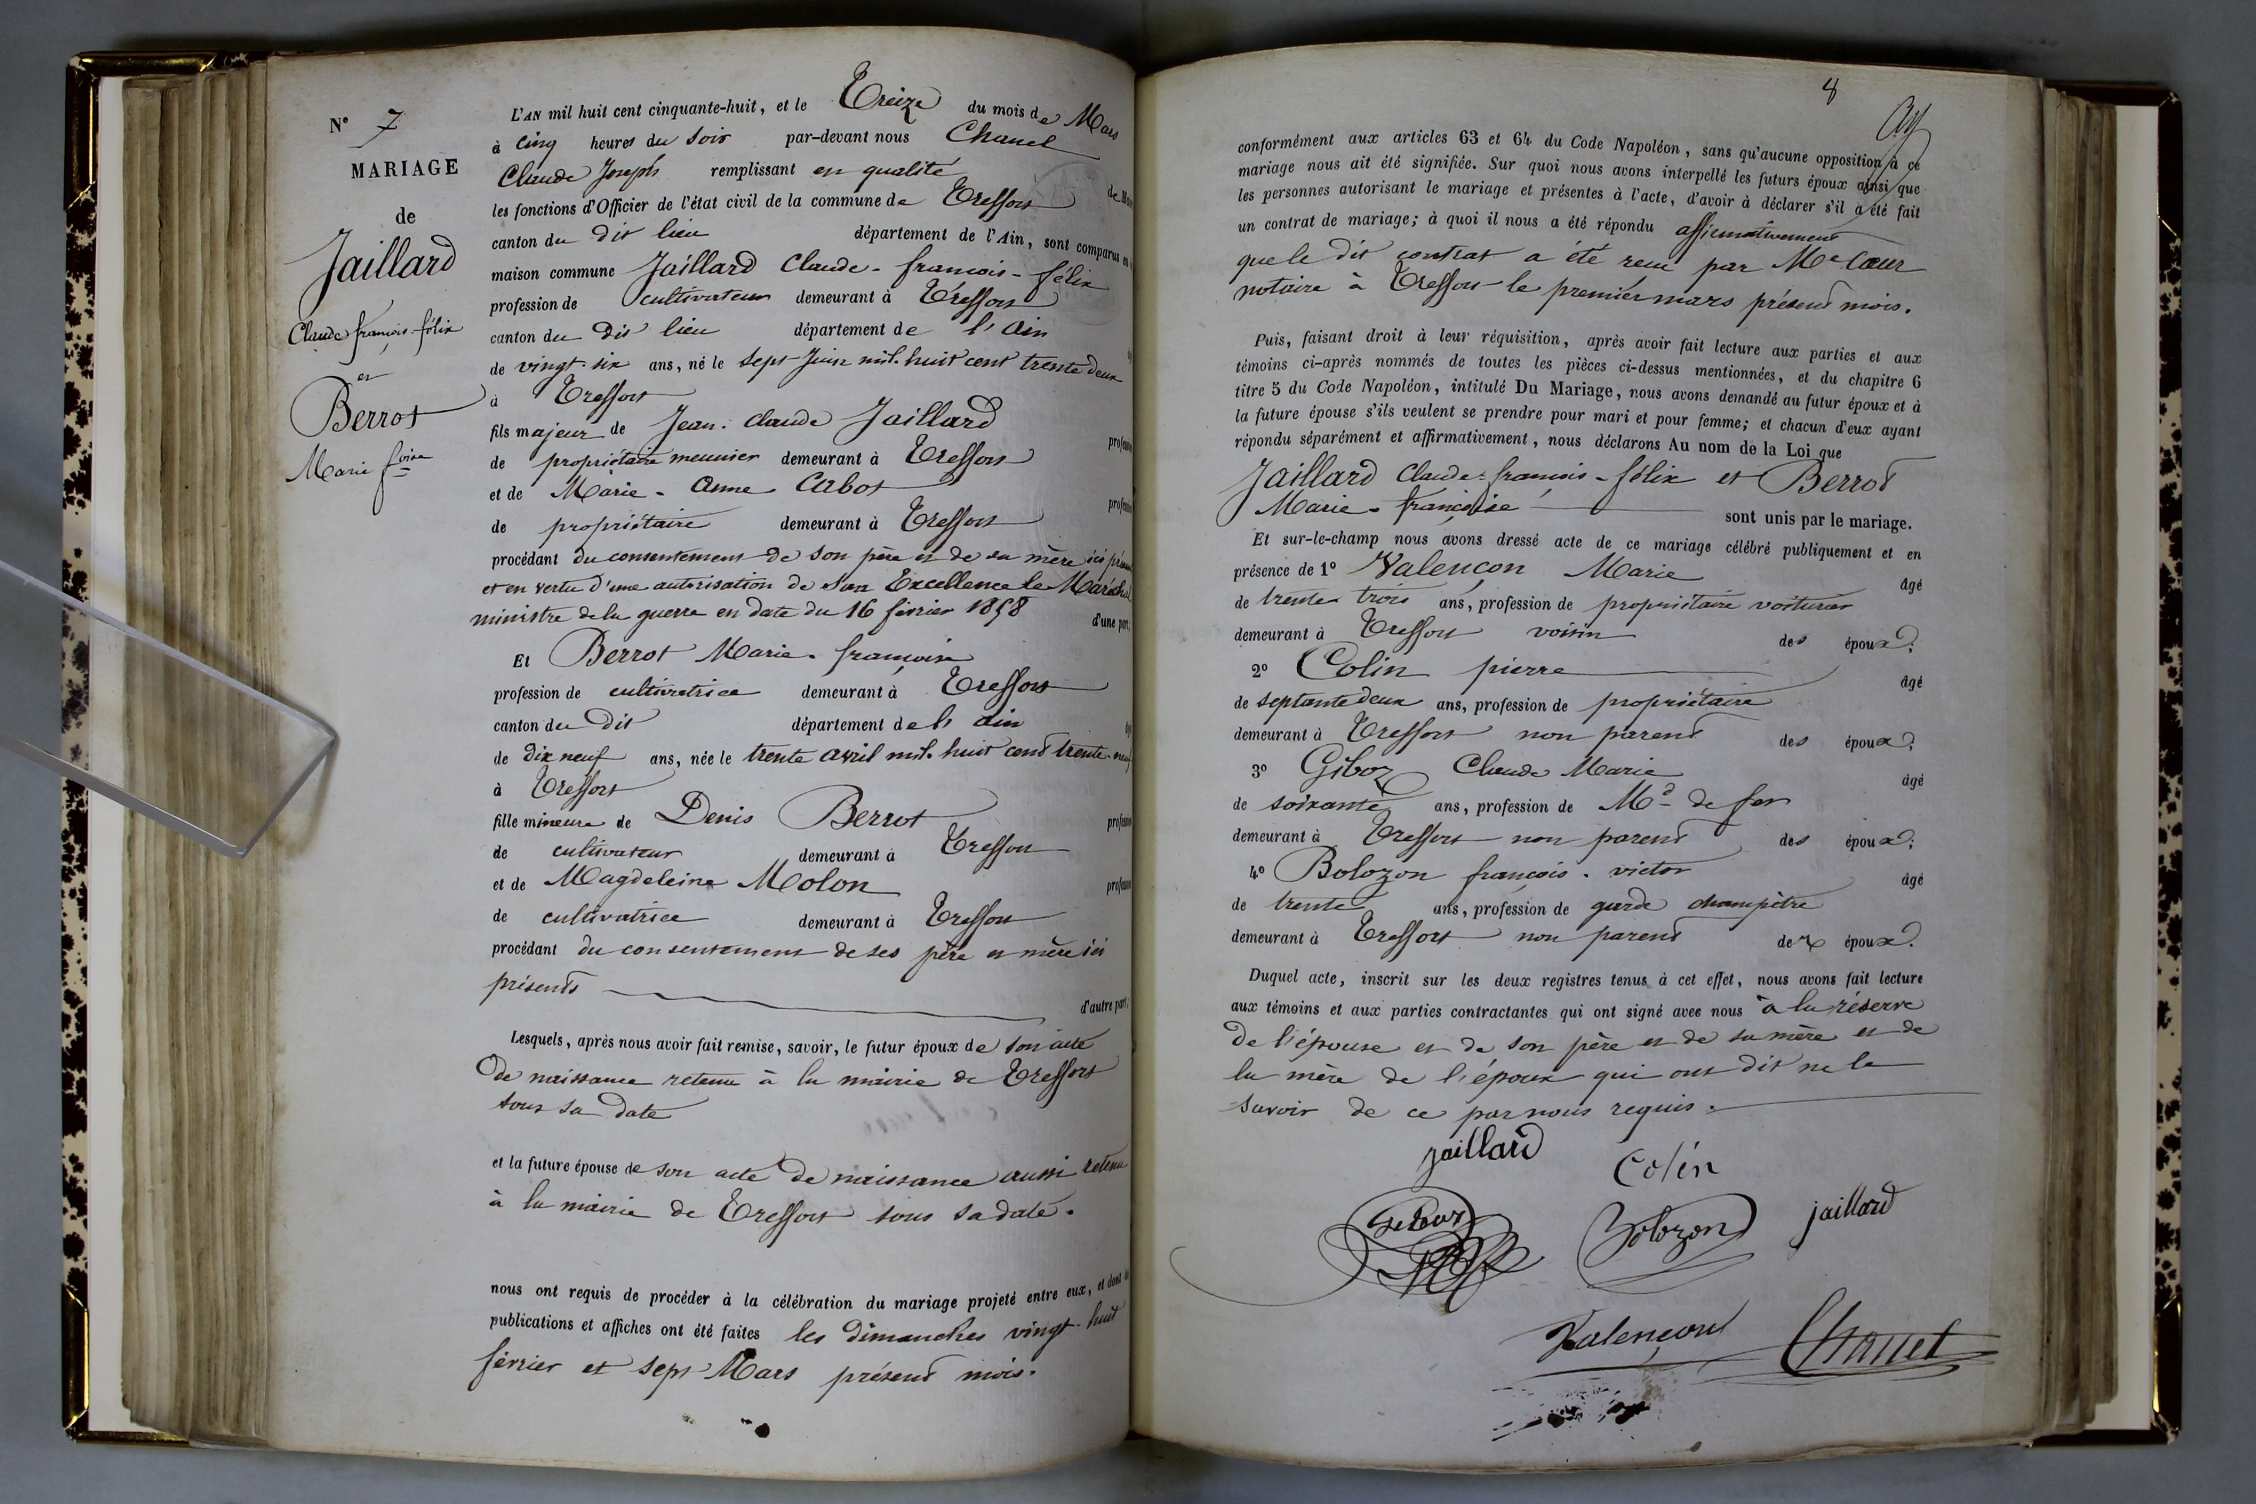 N° 7
MARIAGE
de
Jaillard
Claude françois-félix
et
Berrot
Marie f.oise
L'AN mil huit cent cinquante-huit, et le Treize du mois de Mars
à cinq heures du soir par-devant nous Chanel
Claude Joseph remplissant en qualité de
les fonctions d'Officier de l'état civil de la commune de Treffort
canton du dit lieu département de l'Ain, sont comparus en
maison commune Jaillard Claude-françois-félix
profession de cultivateur demeurant à Treffort
canton du Dit lieu département de l'Ain
de vingt-six ans, né le sept Juin mil-huit cent trente deux
à Treffort
fils majeur de Jean-Claude Jaillard profession
de propriétaire meunier demeurant à Treffort
et de Marie-Anne Cabot profession
de propriétaire demeurant à Treffort
procédant du consentement de son père et de sa mère ici
et en vertu d'une autorisation de son Excellence le Maréchal
ministre de la guerre en date du 16 février 1858 d'une part,
Et Berrot Marie-françoise
profession de cultivatrice demeurant à Treffort
canton du Dit département de l'Ain
de dix neuf ans, née le trente avril mil-huit cent trente-neuf
à Treffort
fille mineure de Denis Berrot profession
de cultivateur demeurant à Treffort
et de Magdeleine Molon profession
de cultivatrice demeurant à Treffort
procédant du consentement de ses père et mère ici
présents d'autre part;
Lesquels, après nous avoir fait remise, savoir, le futur époux de son acte
de naissance retenu à la mairie de Treffort
sous sa date
et la future épouse de son acte de naissance aussi retenu
à la mairie de Treffort sous sa date.
nous ont requis de procéder à la célébration du mariage projeté entre eux, et dont les
publications et affiches ont été faites les dimanches vingt-huit
février et sept Mars présent mois.
8
conformément aux articles 63 et 64 du Code Napoléon, sans qu'aucune opposition à ce
mariage nous ait été signifiée. Sur quoi nous avons interpellé les futurs époux ainsi que
les personnes autorisant le mariage et présentes à l'acte, d'avoir à déclarer s'il a été fait
un contrat de mariage; à quoi il nous a été répondu affirmativement
que le dit contrat a été reçu par Me Cœur
notaire à Treffort le premier mars présent mois.
Puis, faisant droit à leur réquisition, après avoir fait lecture aux parties et aux
témoins ci-après nommés de toutes les pièces ci-dessus mentionnées, et du chapitre 6
titre 5 du Code Napoléon, intitulé Du Mariage, nous avons demandé au futur époux et à
la future épouse s'ils veulent se prendre pour mari et pour femme; et chacun d'eux ayant
répondu séparément et affirmativement, nous déclarons Au nom de la Loi que
Jaillard Claude-françois-félix et Berrot
Marie-françoise sont unis par le mariage.
Et sur-le-champ nous avons dressé acte de ce mariage célébré publiquement et en
présence de 1° Valençon Marie âgé
de trente trois ans, profession de propriétaire voiturier
demeurant à Treffort voisin des époux;
2° Colin pierre âgé
de septante deux ans, profession de propriétaire
demeurant à Treffort non parent des époux;
3° Giboz Claude Marie âgé
de soixante ans, profession de Md de fer
demeurant à Treffort non parent des époux;
4° Bolozon françois-victor âgé
de trente ans, profession de garde champêtre
demeurant à Treffort non parent des époux.
Duquel acte, inscrit sur les deux registres tenus à cet effet, nous avons fait lecture
aux témoins et aux parties contractantes qui ont signé avec nous à la réserve
de l'épouse et de son père et de sa mère et de
la mère de l'époux qui ont dit ne le
savoir de ce par nous requis.
jaillard
Colin
Giboz
Bolozon
jaillard
Valençon
Chanel